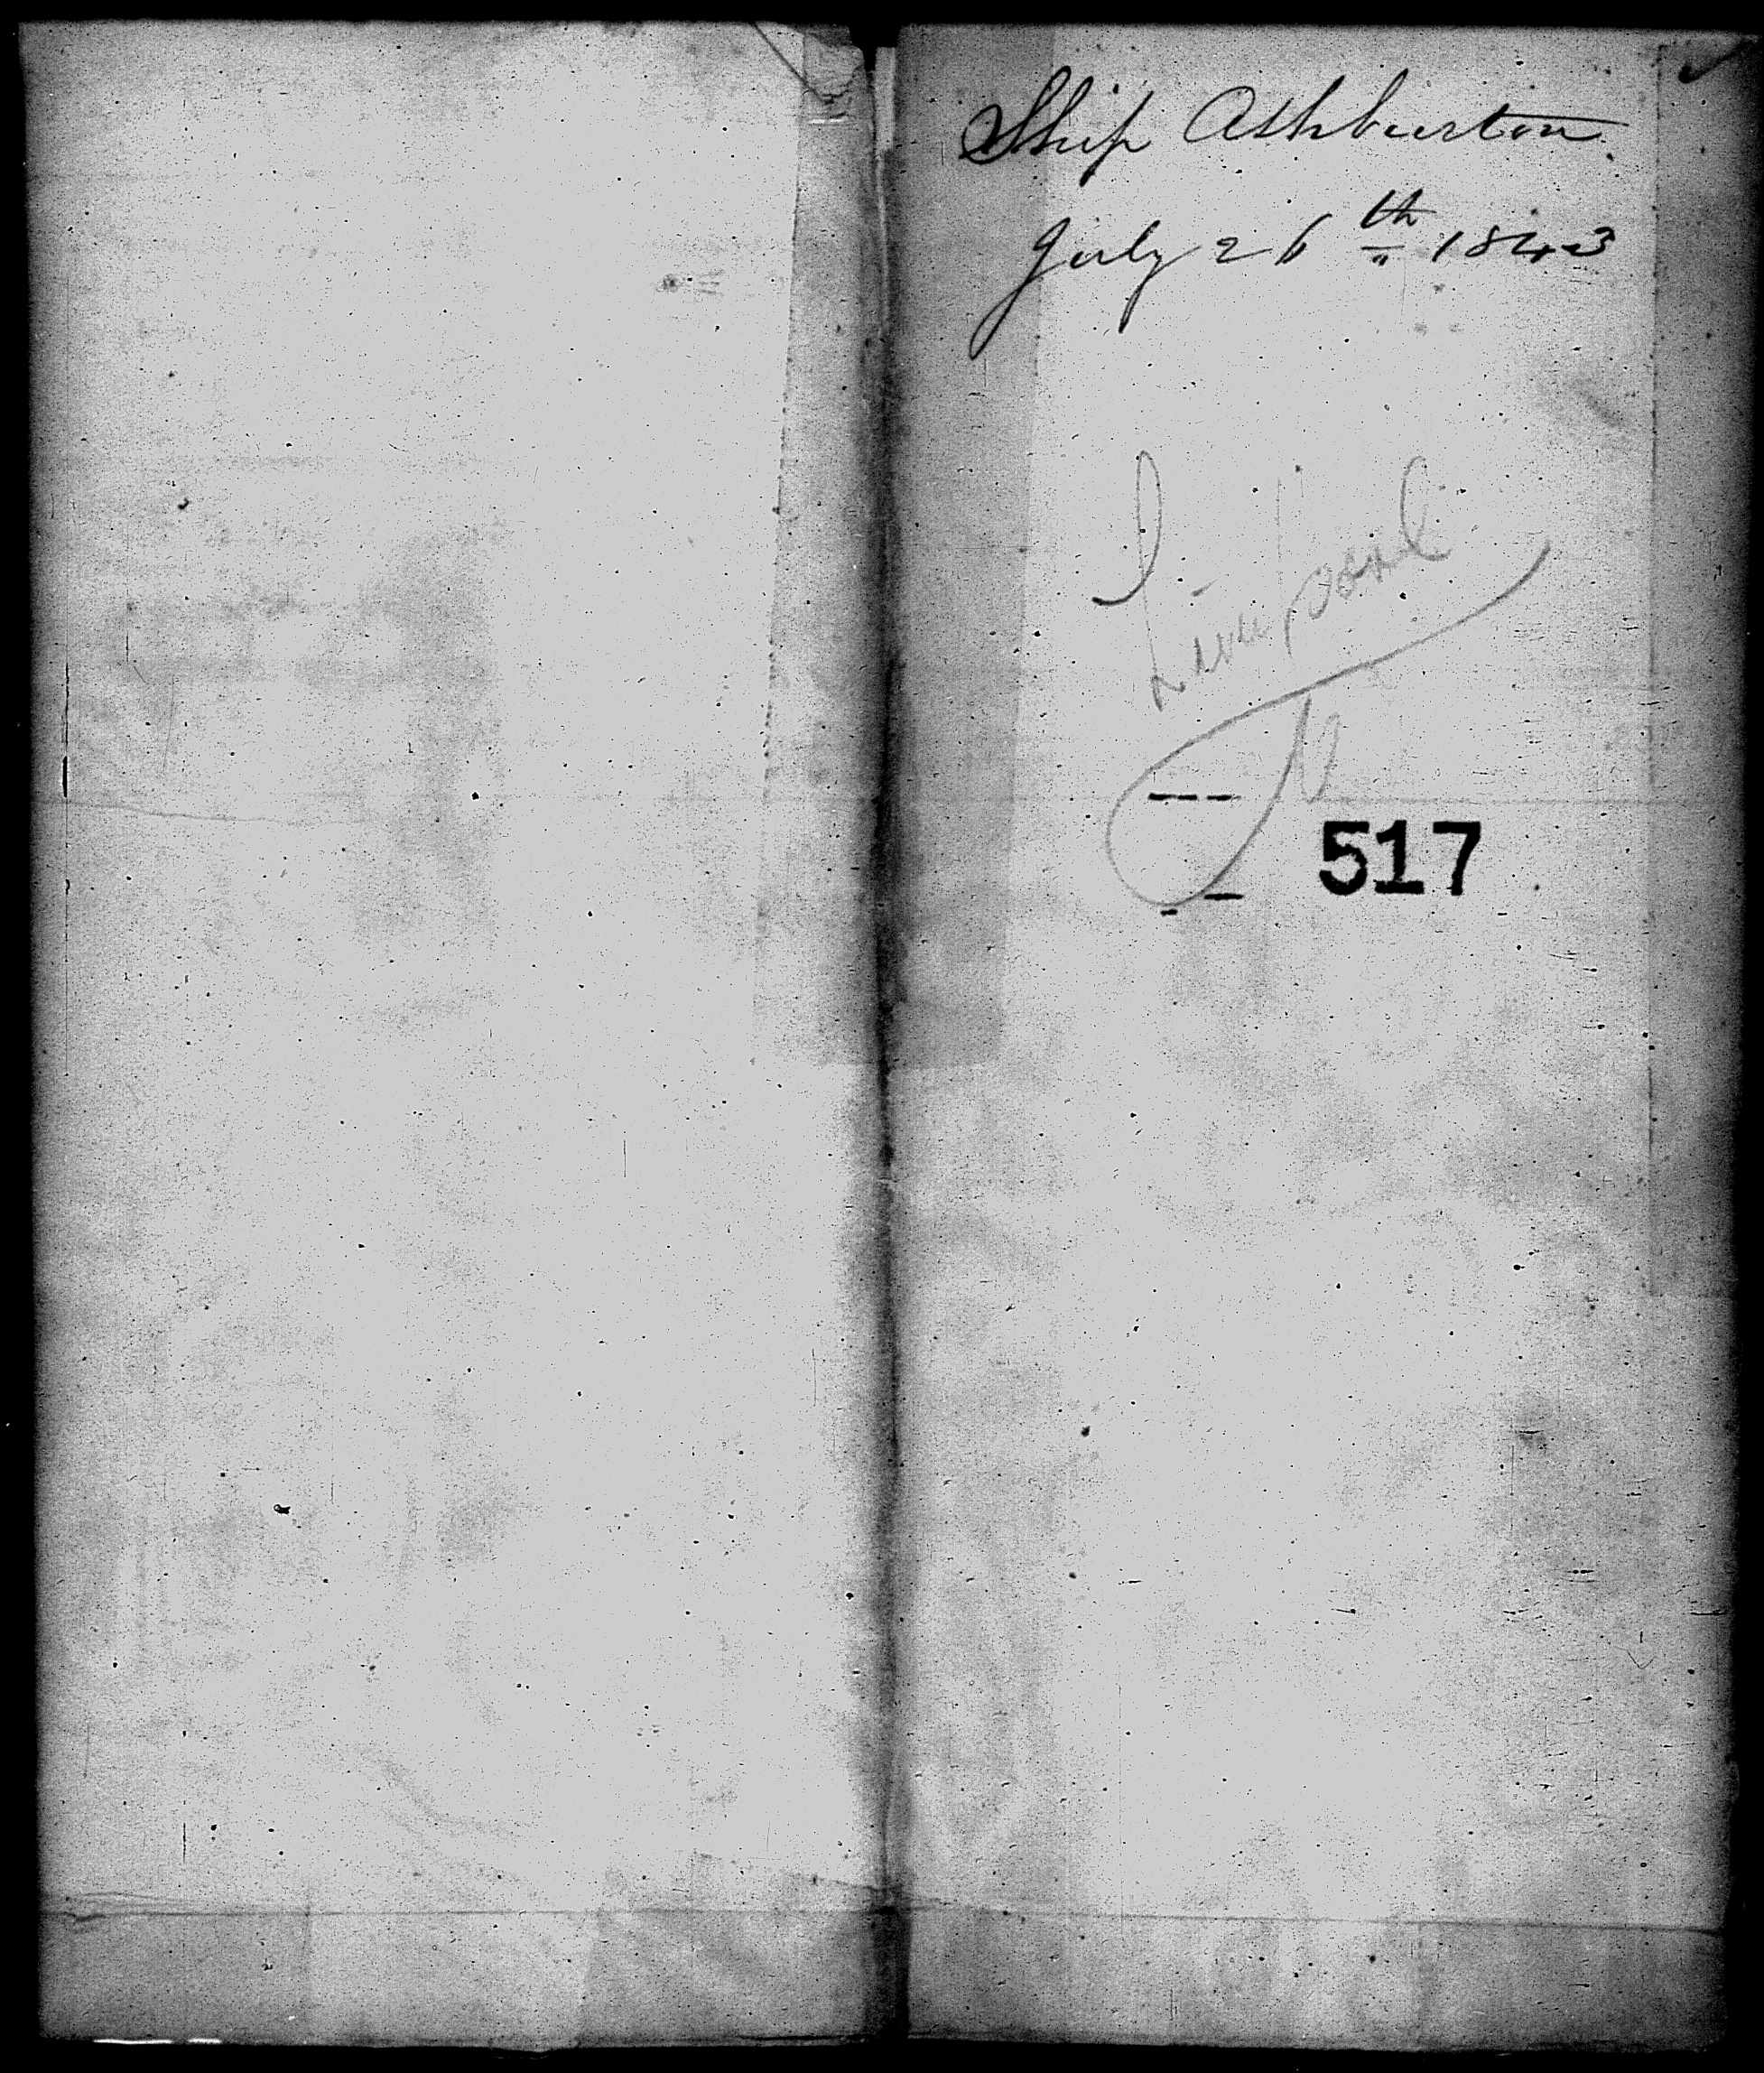 Ship Ashburton
July 26th 1843
Liverpool
517